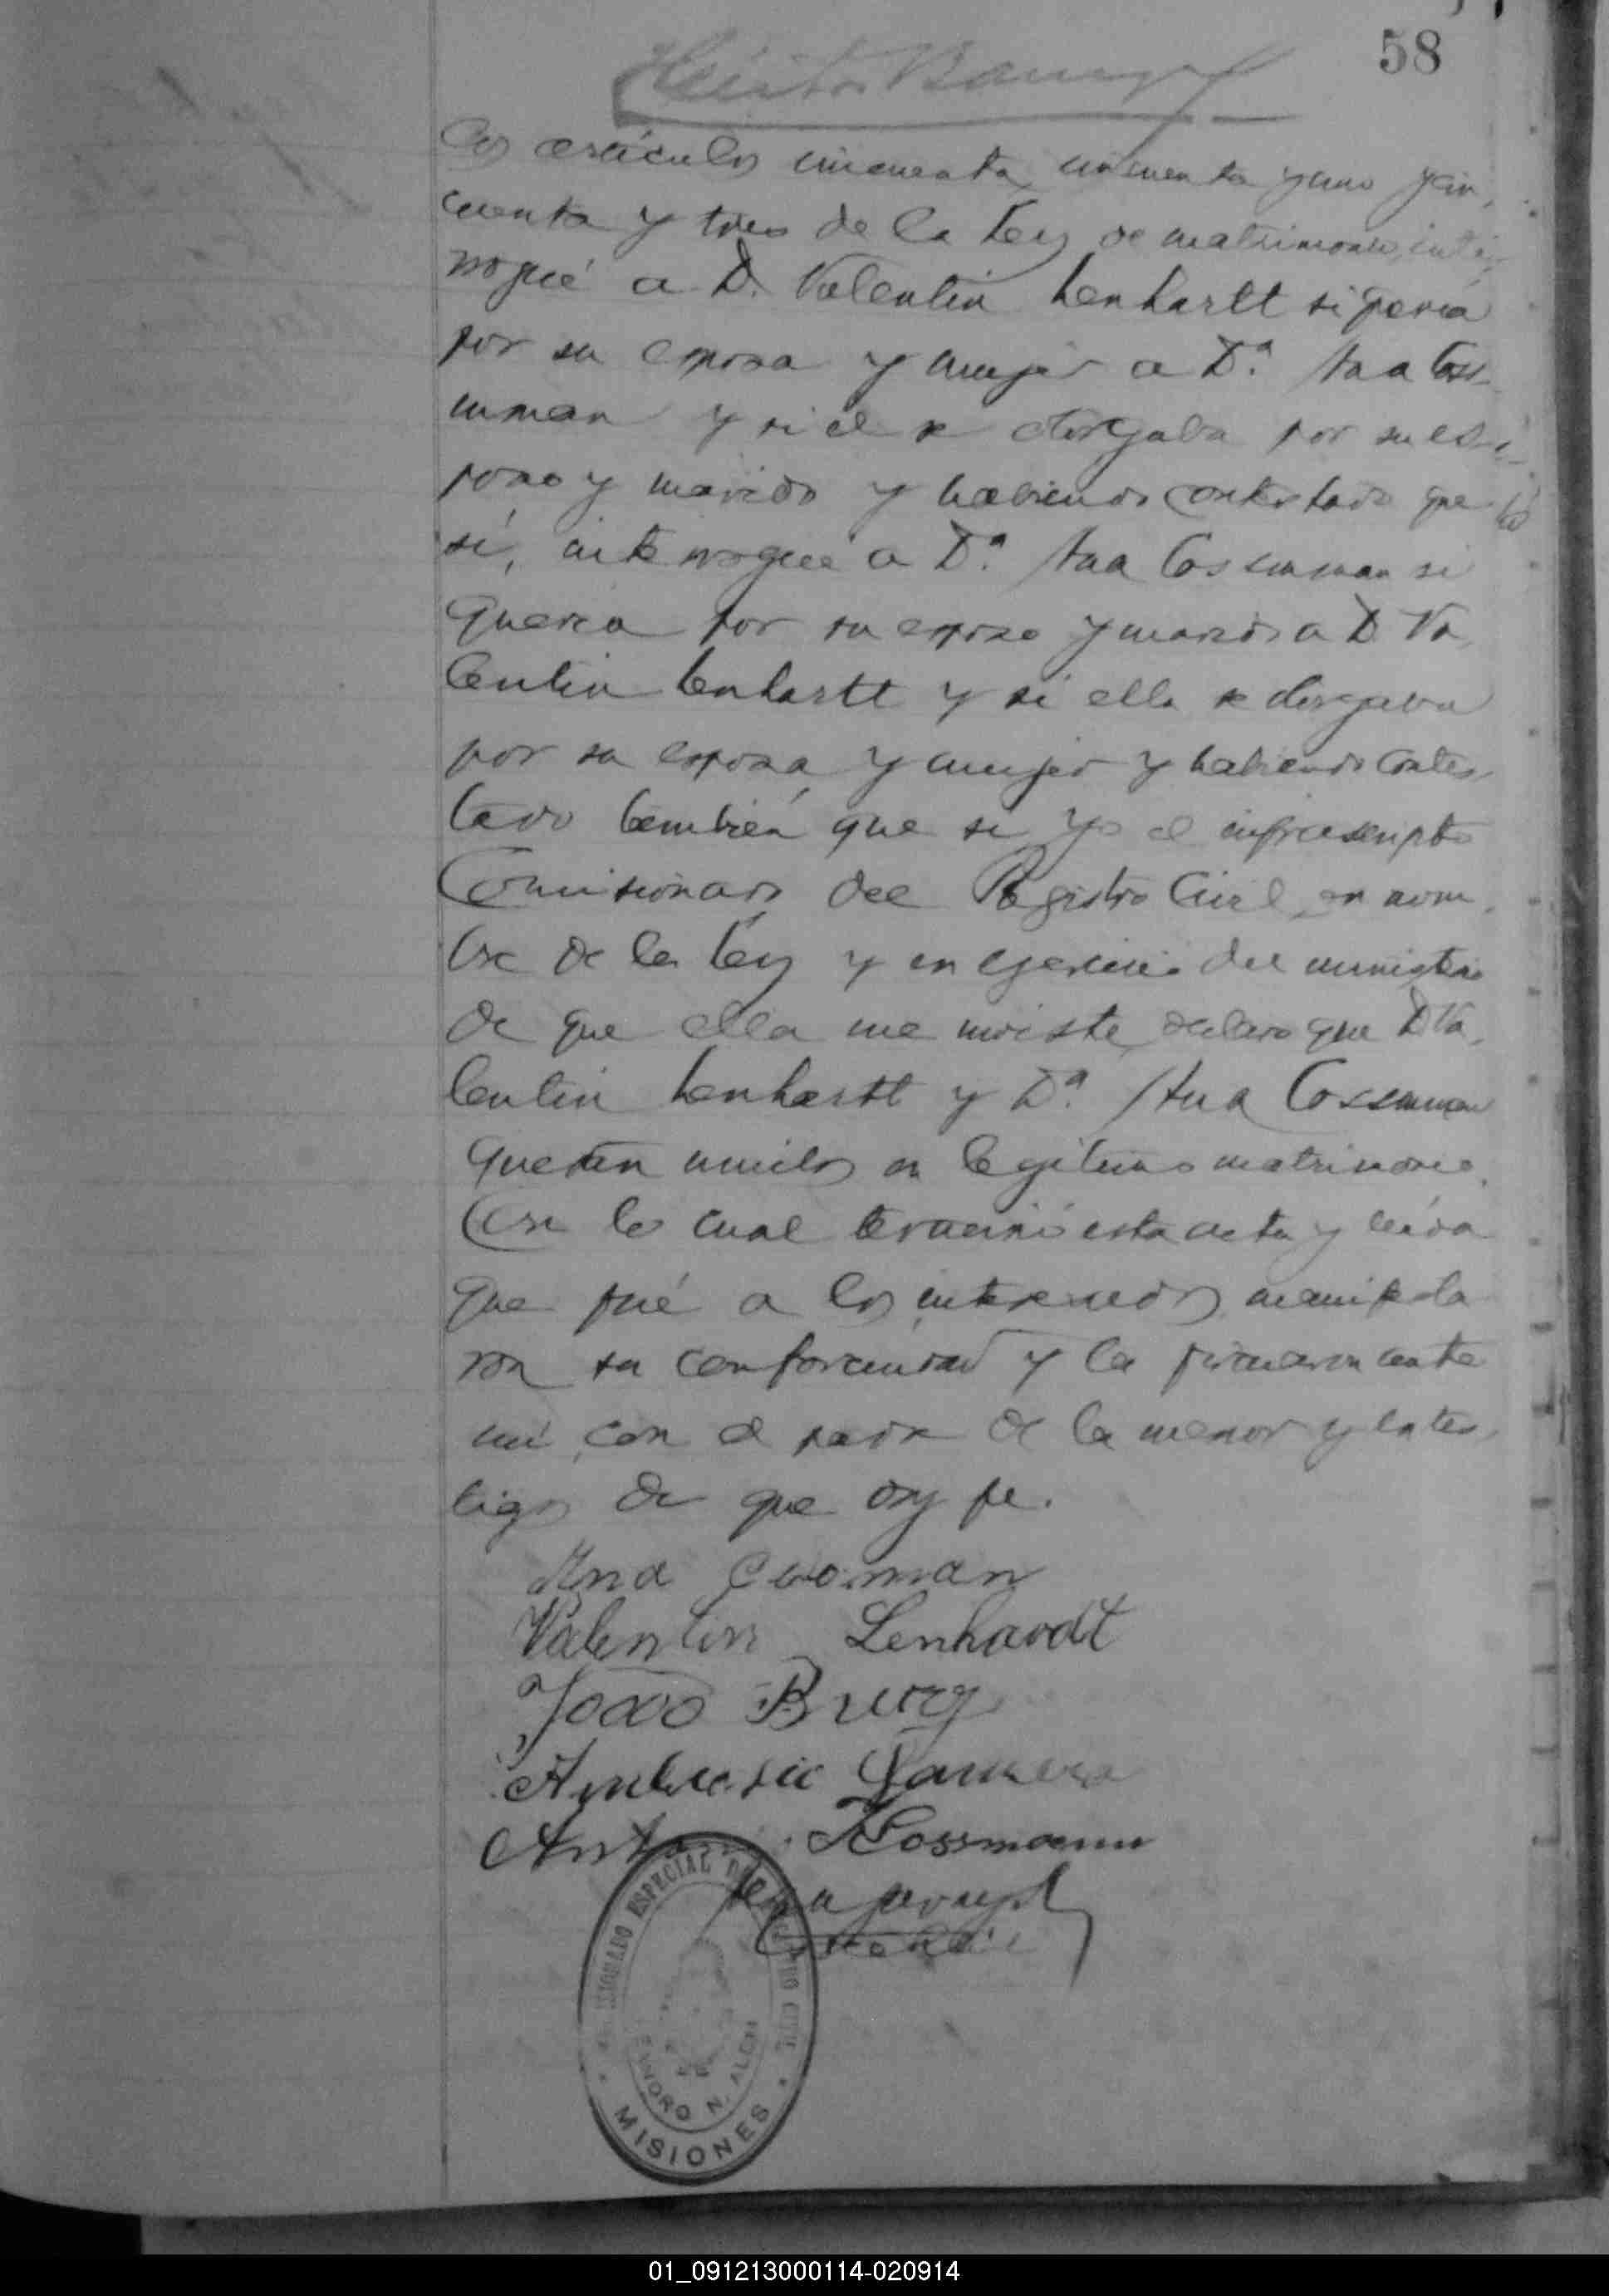 58
los artículos cincuenta, cincuenta y uno y cin,
cuenta y tres de la Ley de matrimonio, inte
rrogué a D. Valentin Lenhartt si queria
por su esposa y mujer a Dª. Ana Coss
mman y si el se otorgaba por su es
poso y marido y habiendo contestado que
sí, interrogué a Dª. Ana Cossmman si
queria por su esposo y marido a D. Va,
lentin Lenhartt y si ella se otorgaba
por su esposa y mujer y habiendo contes,
tado también que si, yo el infrascripto
Comisionado del Registro Civil, en nom,
bre de la Ley y en ejercicio del ministerio
de que ella me inviste, declaro que D Va,
lentin Lenhartt y Dª. Ana Cossmman
quedan unidos en legitimo matrimonio.
Con lo cual terminó esta acta y leida
que fué a los interesados, manifesta
ron su conformidad y la firmaron ante
mi, con el padre de la menor y los tes,
tigos de que doy fe.
Ana
Valentin Lenhardt
João Burg
Ambrosio
Kossmann
ESPECIAL DEL REGISTRO CIVIL
N. ALEM
MISIONES
01_091213000114-020914